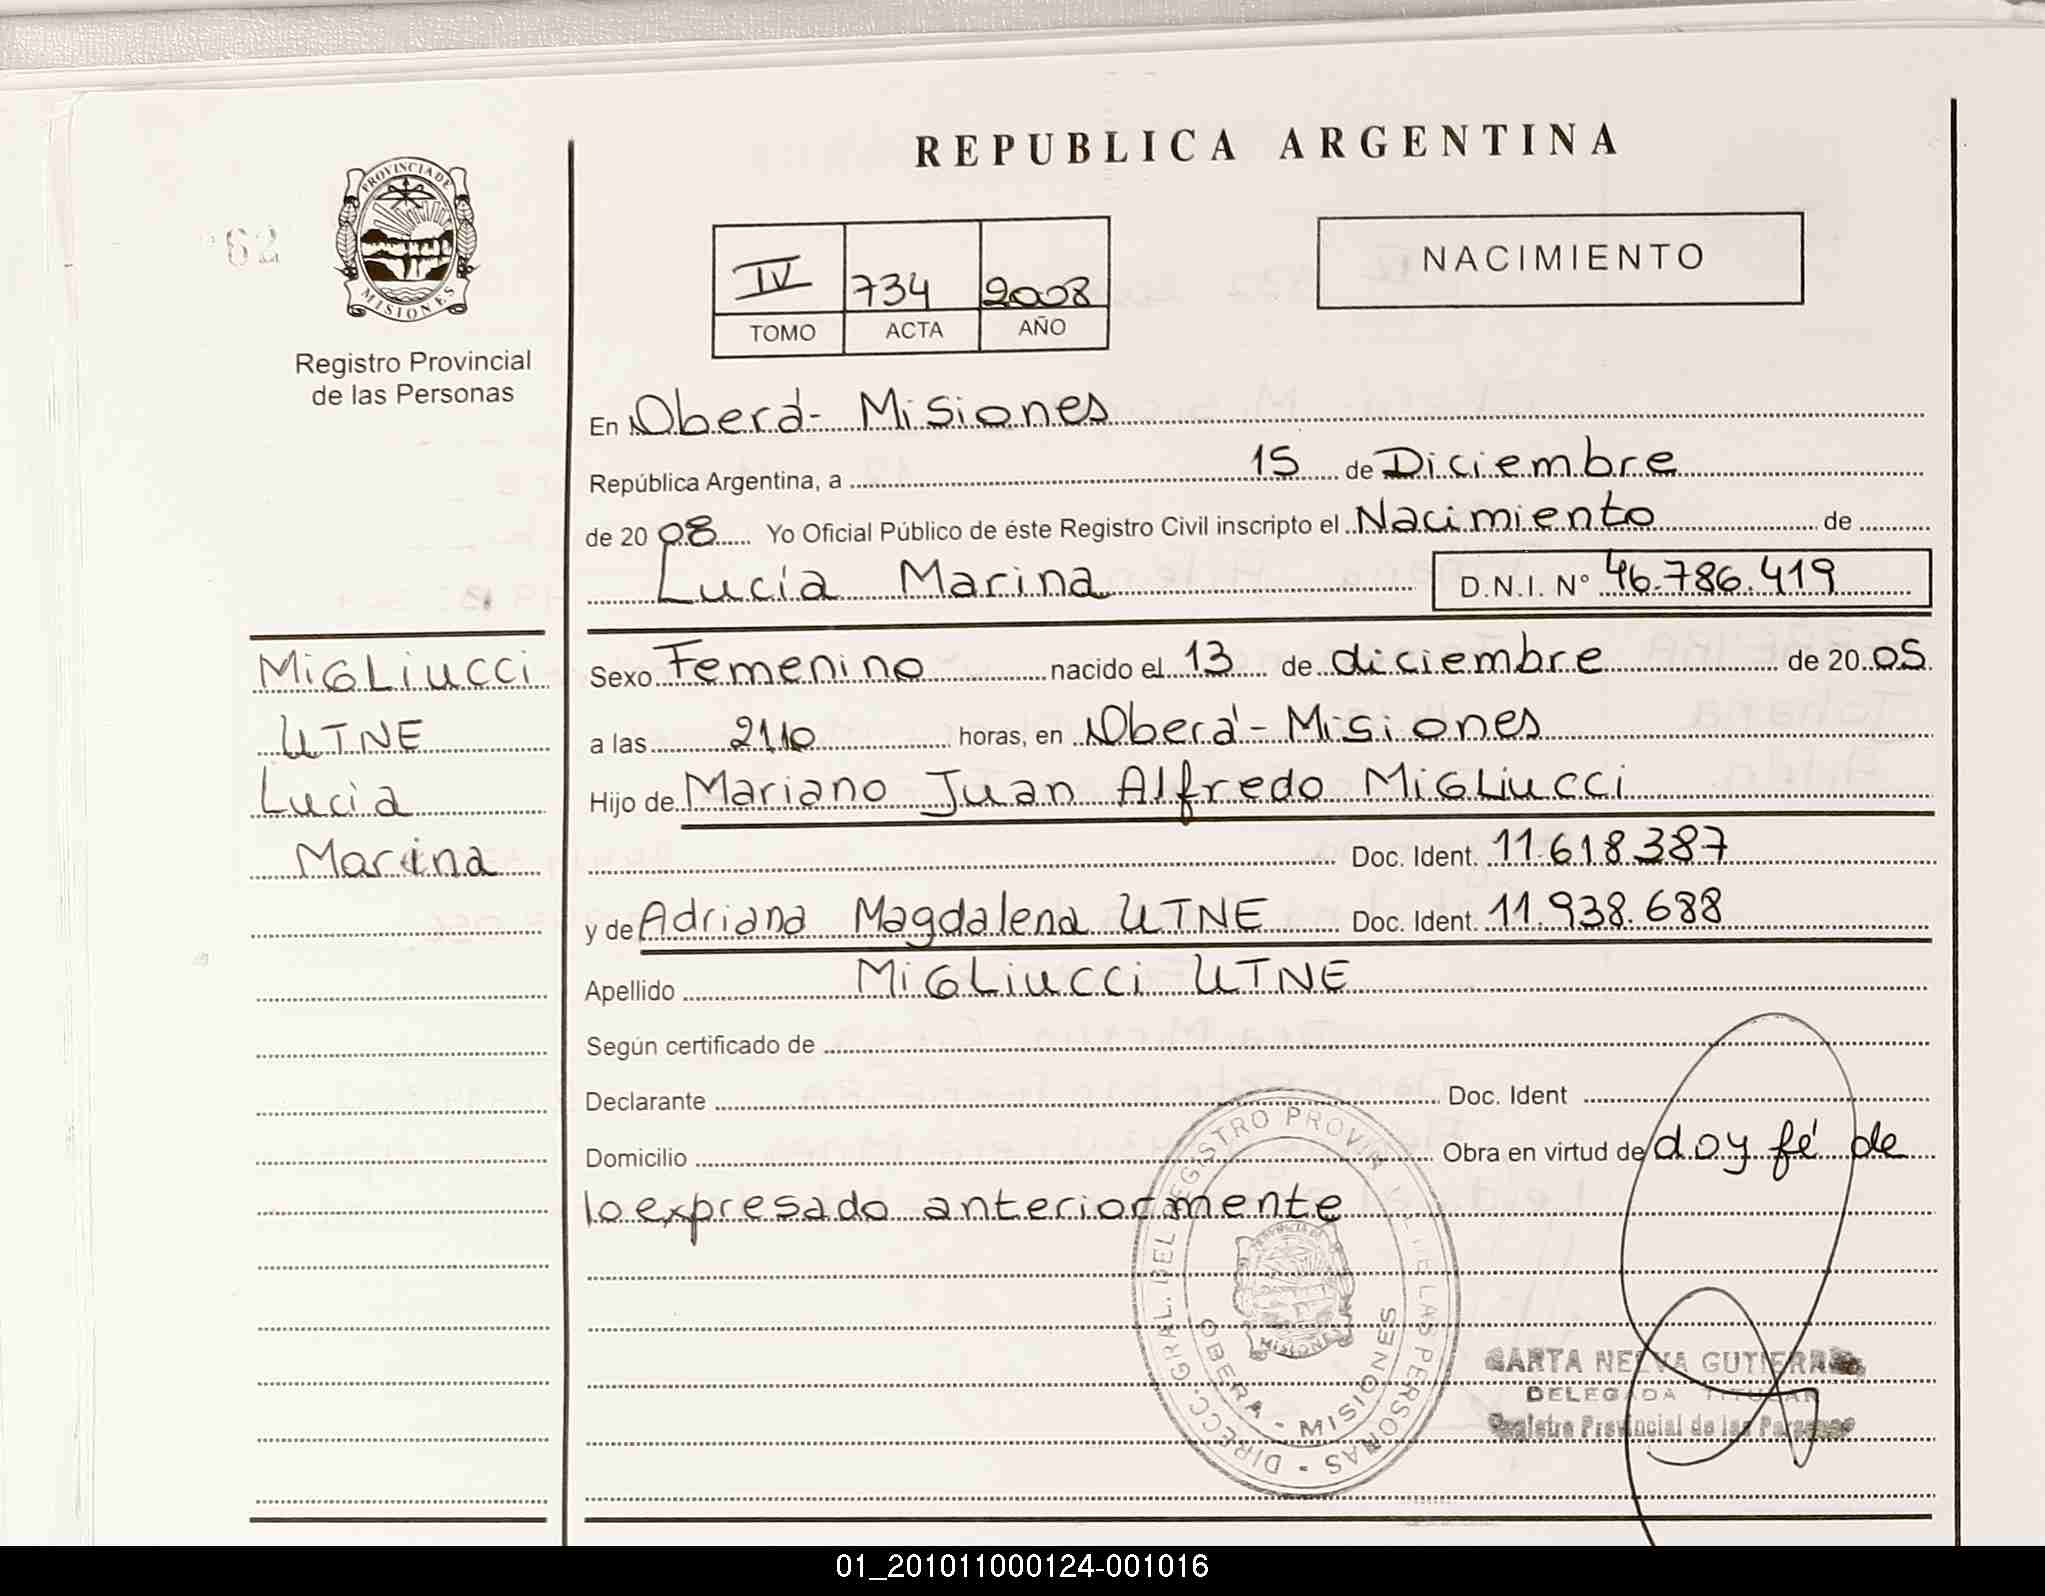 REPUBLICA ARGENTINA
PROVINCIA DE
MISIONES
62
Registro Provincial
de las Personas
IV 734 2008
TOMO ACTA AÑO
NACIMIENTO
En Oberá- Misiones
República Argentina, a 15 de Diciembre
de 20 08 Yo Oficial Público de éste Registro Civil inscripto el Nacimiento de
Lucía Marina D.N.I. N° 46.786.419
MiGLiucci
UTNE
Lucía
Marina
Sexo Femenino nacido el 13 de diciembre de 20 05
a las 21,10 horas, en Oberá - Misiones
Hijo de Mariano Juan Alfredo MiGLiucci
Doc. Ident. 11.618.387
y de Adriana Magdalena UTNE Doc. Ident. 11.938.688
Apellido MiGLiucci UTNE
Según certificado de
Declarante Doc. Ident
Domicilio Obra en virtud de doy fé de
lo expresado anteriormente
DIRECC. GRAL. DEL REGISTRO PROVINCIAL DE LAS PERSONAS
OBERA - MISIONES
MISIONES
GUTIERREZ
DELEGADA TITULAR
Registro Provincial de las Personas
01_201011000124-001016